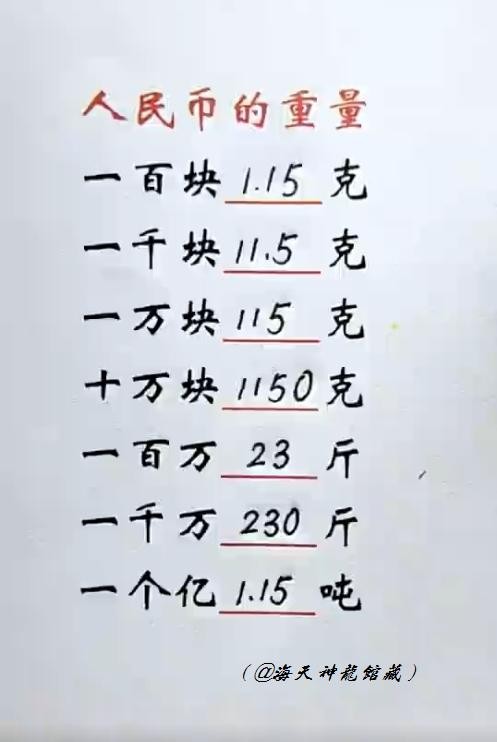 人民币的重量
一百块 1.15 克
一千块 11.5 克
一万块 115 克
十万块 1150 克
一百万 23 斤
一千万 230 斤
一个亿 1.15 吨
(@海天神龍館藏)